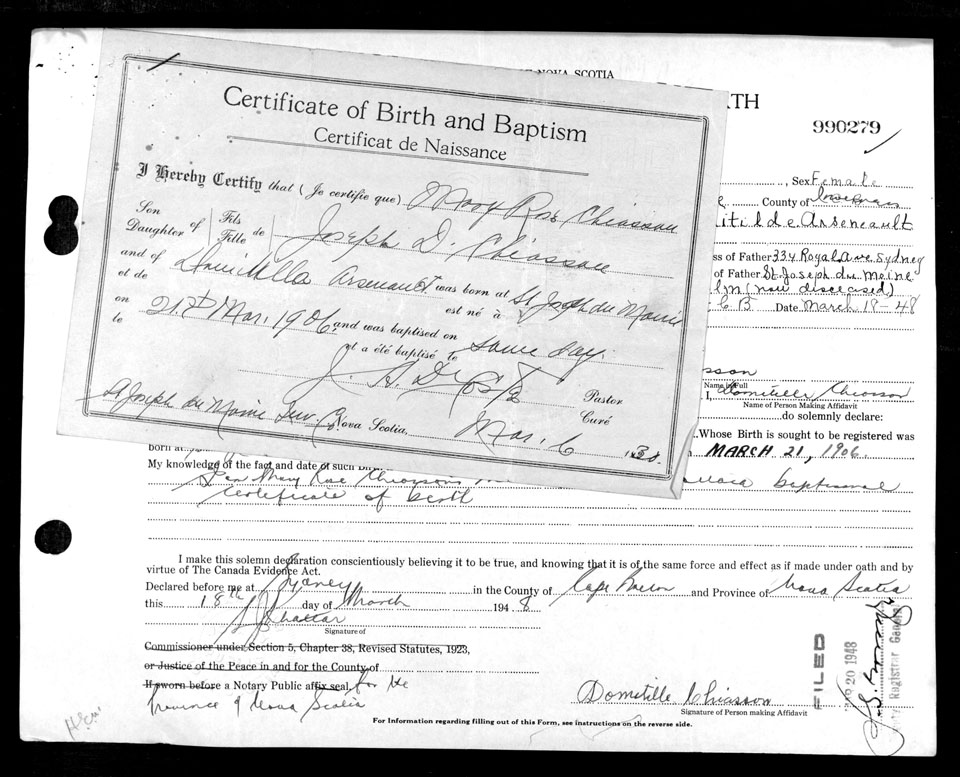 NOVA SCOTIA
Certificate of Birth and Baptism
Certificat de Naissance
I Hereby Certify that (Je certifie que) Mary Rose Chiasson
Son Daughter of Fils Fille de Joseph D. Chiasson
and of et de Arsenault was born at est né à St. Joseph du Moine
on le 21st Mar. 1906 and was baptised on et a été baptisé le same day.
J. A. Pastor Curé
St Joseph du Moine Inv. Co Nova Scotia, Mar. 6
990279
Sex Female
County of Inverness
Arseneault
ss of Father 334 Royal Ave Sydney
of Father St. Joseph du Moine
(now disceased)
C B Date March 18-48
sson
Name in Full
I, Domitille Chiasson
Name of Person Making Affidavit
do solemnly declare:
Whose Birth is sought to be registered was
born at MARCH 21, 1906
My knowledge of the fact and date of such
Mary Rose Chiasson's baptismal
certificate of birth
I make this solemn declaration conscientiously believing it to be true, and knowing that it is of the same force and effect as if made under oath and by
virtue of The Canada Evidence Act.
Declared before me at Sydney in the County of Cape Breton and Province of Nova Scotia
this 18th day of March 1948
Signature of
Commissioner under Section 5, Chapter 38, Revised Statutes, 1923,
or Justice of the Peace in and for the County of
If sworn before a Notary Public affix seal for the
Province of Nova Scotia
Domitille Chiasson
Signature of Person making Affidavit
For Information regarding filling out of this Form, see instructions on the reverse side.
FILED
20 1948
Registrar General